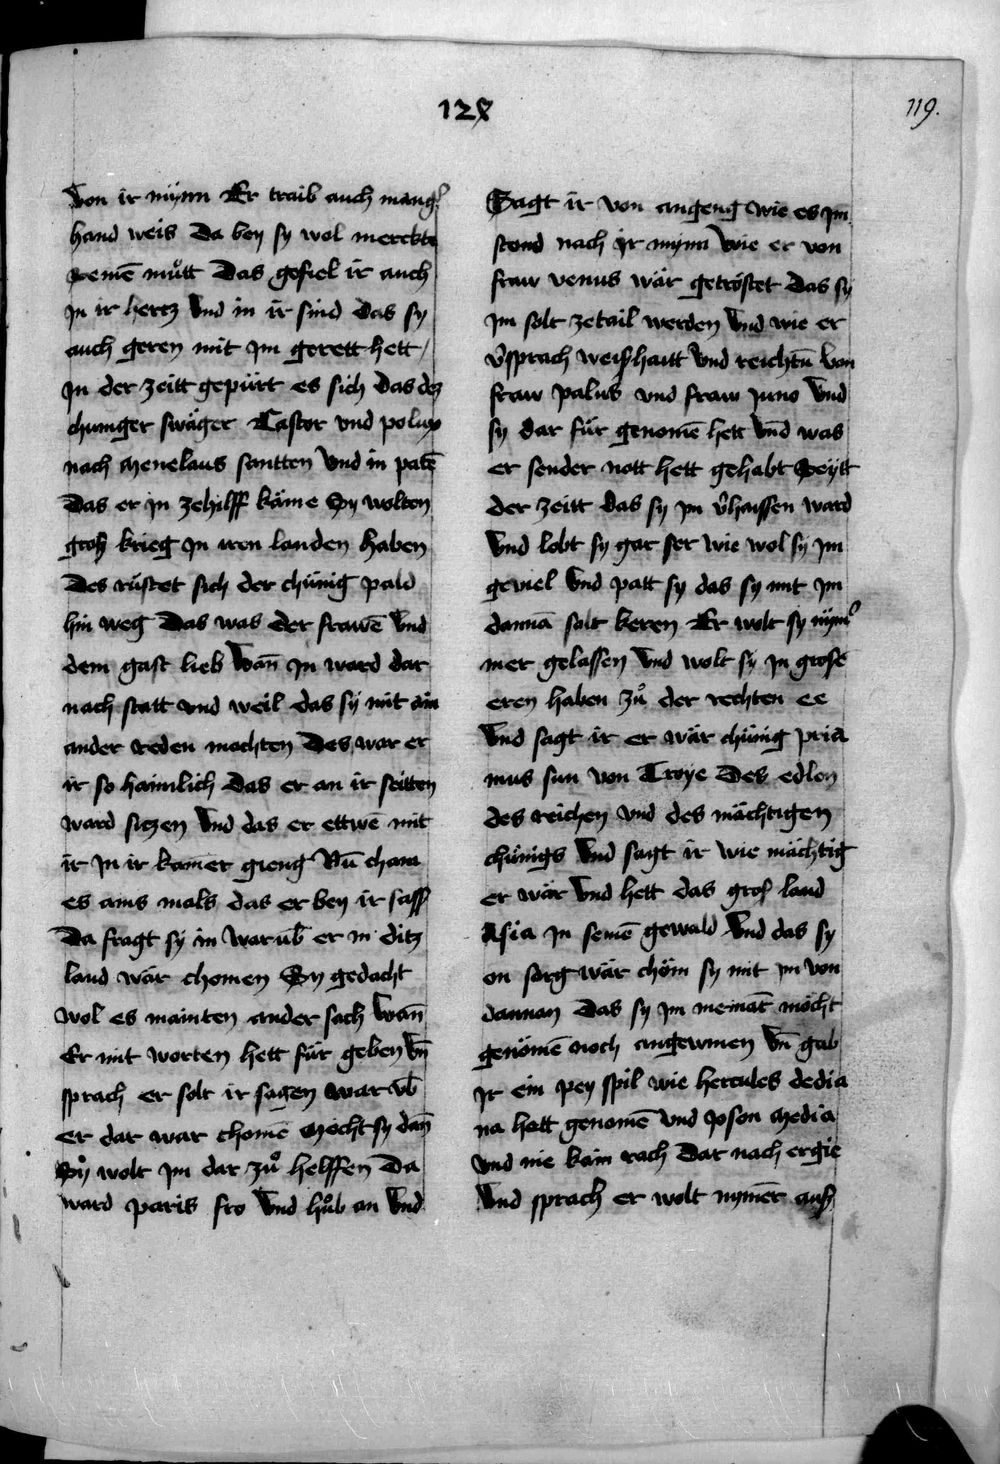 128
119.
von ir mynn Er traib auch mang̾
hand weis Da bey sy wol merckte
seinē muͦtt Das gefiel ir auch
Jn ir hertz Vnd in ir sind Das sy
auch geren mit Jm gerett hett /
Jn der zeitt gepürt es sich das dez
chuniger swäger Castor vnd polux
nach Menelaus santten Vnd in patē
Das er Jn zehilff käme Sy wolten
groß krieg Jn iren landen haben
Des rüstet sich der chünig pald
hin weg Das was der frawē Vnd
dem gast lieb Wan̄ Jn ward dar
nach statt vnd weil das sy mit ain
ander reden mochten Des war er
ir so haimlich Das er an ir seitten
ward siczen Vnd das er ettwē mit
ir Jn ir kamer gieng Nū cham
es ains mals das er bey ir sass
Da fragt sy in Warūb er in ditz
land wär chomen Sy gedacht
wol es mainten ander sach Wan̄
Er mit worten hett für geben Vn̄
sprach er solt ir sagen war vb̄
er dar war chomē Möcht sy dan̄
Sy wolt Jm dar zuͦ helffen Da
ward paris fro Vnd huͦb an Vnd
Sagt ir von angeng Wie es Jm
stond nach Jr mynn Wie er von
fraw venus wär getröstet das sy
Jm solt zetail werden Vnd wie er
v̾sprach weißhaitt Vnd reichtū Von
fraw palus vnd fraw Juno Vnd
sy dar für genomē hett Vnd was
er sender nott hett gehabt Seytt
der zeitt das sy Jm v̾haissen ward
Vnd lobt sy gar ser Wie wol sy Jm
geviel Vnd patt sy das sy mit Jm
dannā solt keren Er wolt sy nym̾
mer gelassen Vnd wolt sy Jn grosē
eren haben zuͦ der rechten ee
Vnd sagt ir er wär chünig pria
mus sun von Troye Des edlen
des reichen vnd des mächtigen
chünigs Vnd sagt ir Wie mächtig
er wär Vnd hett das groß land
Asia Jn seinē gewald Vnd das sy
on sorg wär chöm sy mit Jm von
dannan Das sy Jm niemāt möcht
genömē noch angewinen Vn̄ gab
Jr ein pey spil wie hercules dedia
na hett genomē Vnd Joson Media
Vnd nie kain rach Dar nach ergie
Vnd sprach er wolt nymēr auß